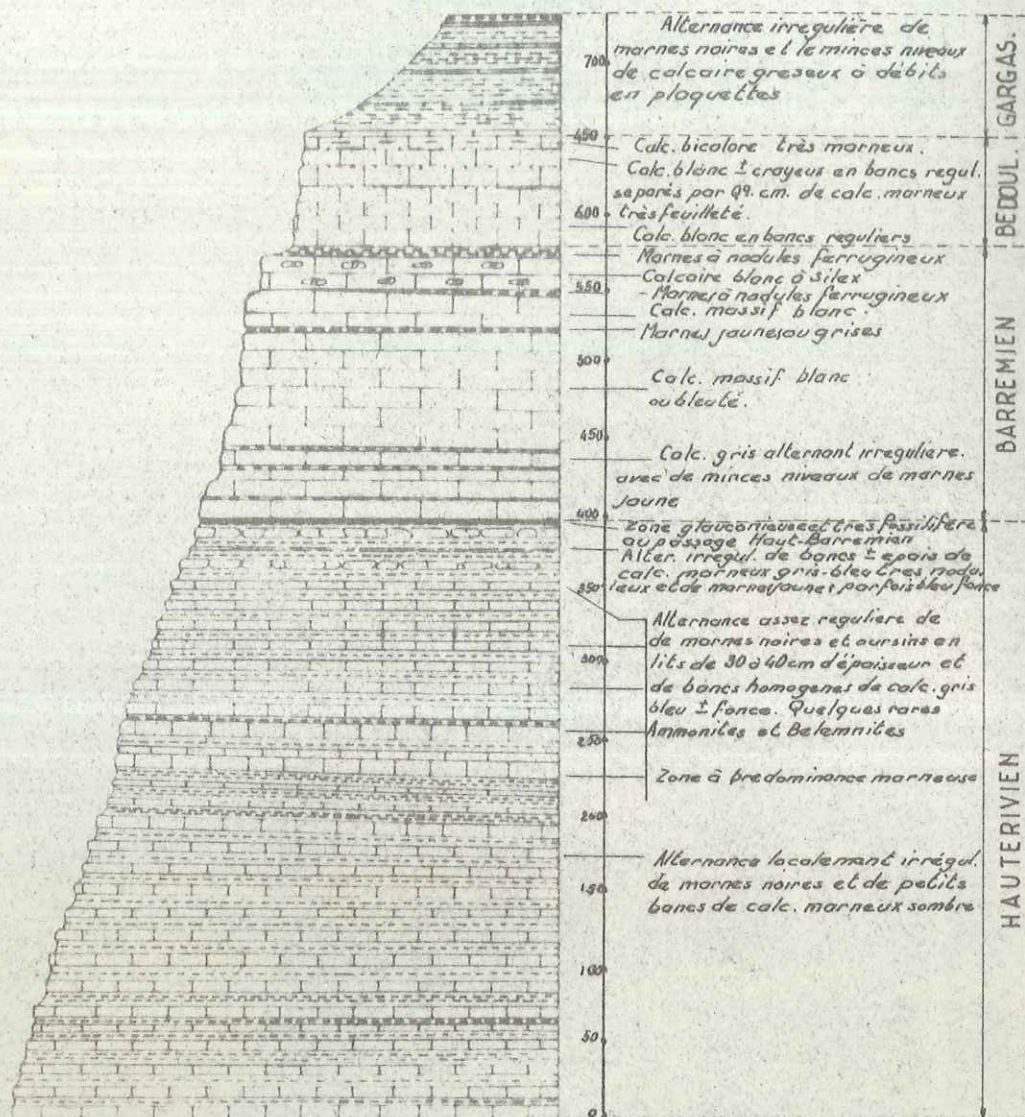 Alternance irregulière de
marnes noires et le minces niveaux
de calcaire greseux à débits
en plaquettes
Calc. bicolore très marneux.
Calc. blanc ± crayeux en bancs regul.
separés par qq. cm. de calc. marneux
très feuilleté.
Calc. blanc en bancs reguliers
Marnes à nodules ferrugineux
Calcaire blanc à silex
- Marnes à nodules ferrugineux
Calc. massif blanc.
Marnes jaunes ou grises
Calc. massif blanc
ou bleuté.
Calc. gris alternant irreguliere.
avec de minces niveaux de marnes
jaune
Zone glauconieuse et tres fossilifère
au passage Haut-Barremien
Alter. irregul. de bancs ± epais de
calc. marneux gris-bleu tres nodu.
leux et de marne jaune, parfois bleu fonce
Alternance assez reguliere de
de marnes noires et oursins en
lits de 30 à 40cm d'épaisseur et
de bancs homogenes de calc. gris
bleu ± fonce. Quelques rares
Ammonites et Belemnites
Zone à predominance marneuse
Alternance localemant irrégul.
de marnes noires et de petits
bancs de calc. marneux sombre
700
650
600
550
500
450
400
350
300
250
200
150
100
50
0
GARGAS.
BEDOUL.
BARREMIEN
HAUTERIVIEN